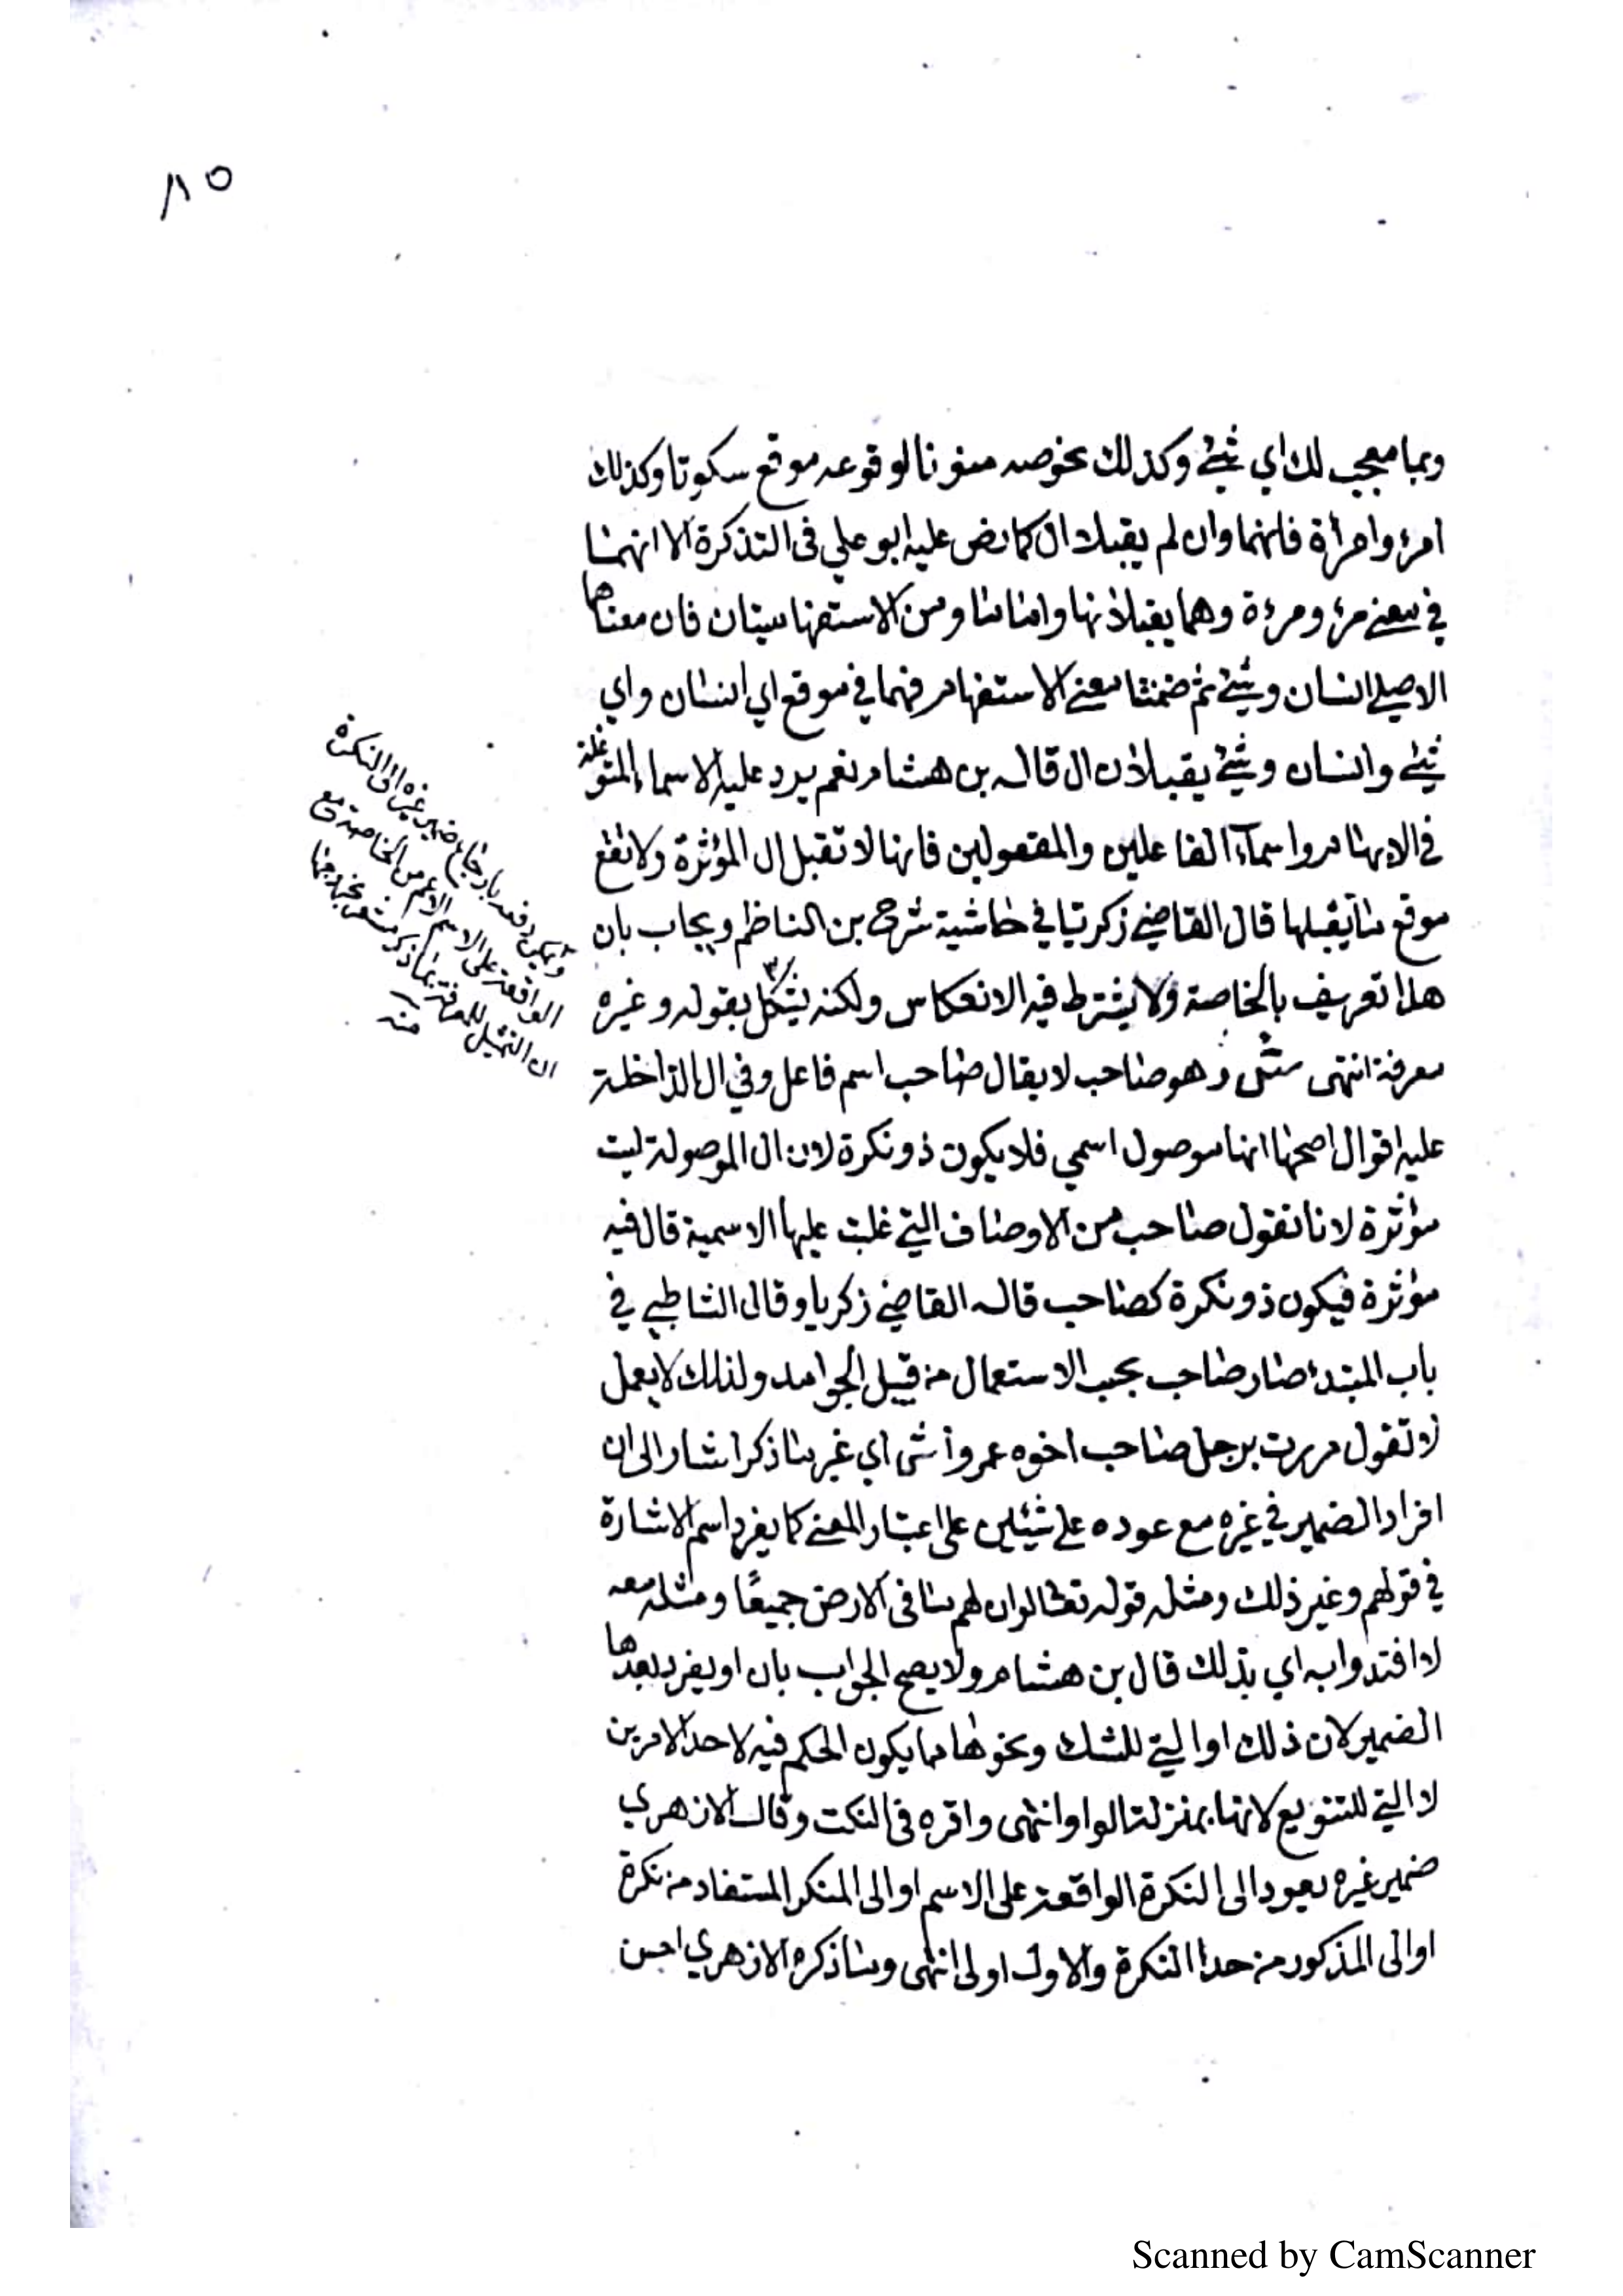 ٨٥
وبما معجب لك اي شيئ وكذلك نحو صه منونا لوقوعه موقع سكوتا وكذلك
امرء وامرأة فانهما وان لم يقبلا ال كما نص عليه ابو علي فى التذكرة الا انهما
في معنى مرء ومرءة وهما يقبلانها واما ما ومن الاستفهاميتان فان معناهما
الاصيلى انسان وشيئ ثم ضمنتا معنى الاستفهام فهما في موقع اي انسان واي
شيئ وانسان وشيئ يقبلان ال قاله بن هشام نعم يرد عليه الاسماء المتوغلة
في الابهام واسمآء الفاعلين والمفعولين فانها لا تقبل ال المؤثرة ولا تقع
موقع ما يقبلها قال القاضي زكريا في حاشية شرح بن الناظم ويجاب بان
هذا تعريف بالخاصة ولا يشترط فيه الانعكاس ولكنه يشكل بقوله وغيره
معرفة انتهى وهو صاحب لا يقال صاحب اسم فاعل وفي ال الداخلة
عليه اقوال اصحها انها موصول اسمي فلا يكون ذو نكرة لان ال الموصولة ليست
مؤثرة لانا نقول صاحب من الاوصاف التي غلبت عليها الاسمية قال فيه
مؤثرة فيكون ذو نكرة كصاحب قاله القاضي زكريا وقال الشاطبي في
باب المبتدء صار صاحب بحسب الاستعمال من قبيل الجوامد ولذلك لا يعمل
لا تقول مررت برجل صاحب اخوه عمروا ش اي غير ما ذكر اشار الى ان
افراد الضمير في غيره مع عوده على شيئين على اعتبار المعنى كما يفرد اسم الاشارة
في قولهم وغير ذلك ومثله قوله تعالى لو ان لهم ما فى الارض جميعًا ومثله معه
لافتدوا به اي بذلك قال بن هشام ولا يصح الجواب بان او يفرد بعدها
الضمير لان ذلك او التي للشك ونحوها مما يكون الحكم فيه لاحد الامرين
لا التي للتنويع لانها بمنزلة الواو انتهى واقره فى النكت وقال الازهري
ضمير غيره يعود الى النكرة الواقعة على الاسم او الى المنكر المستفاد من نكرة
او الى المذكور من حد النكرة والاول اولى انتهى وما ذكره الازهري احسن
ويمكن دفعه بارجاع ضمير غيره الى النكرة
الواقعة على الاسم الاعم من الخاصة مع
ان التمثيل للمعرفة بما ذكر
منه
Scanned by CamScanner